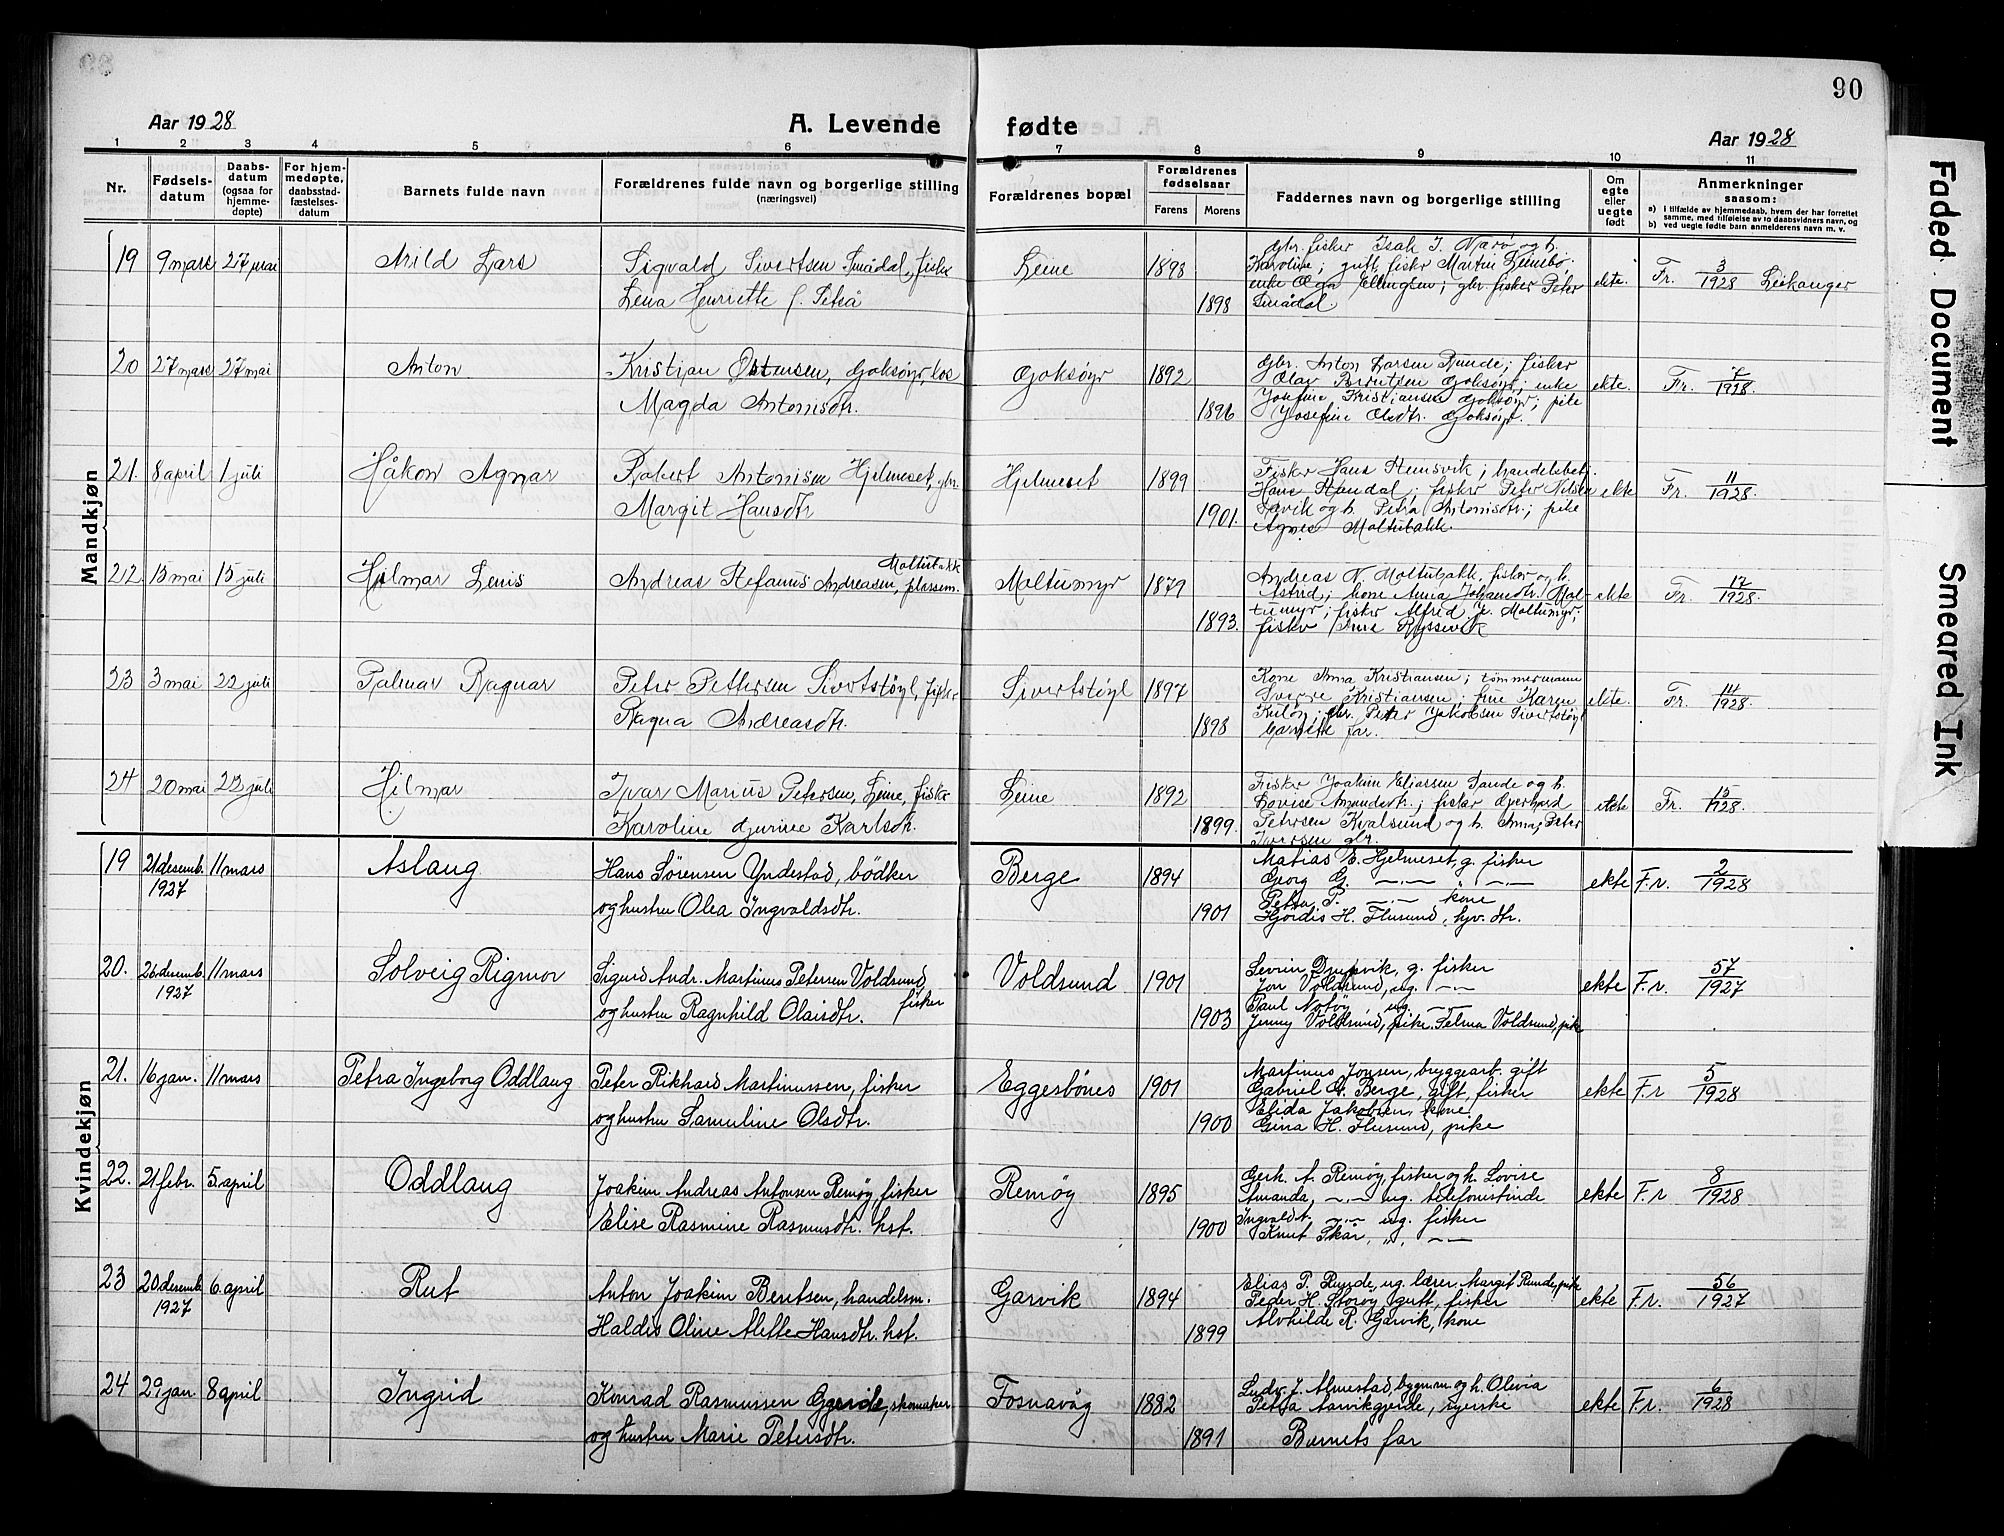 90
Aar 1928
A. Levende fødte
Aar 1928
1 2 3 4 5 6 7 8 9 10 11
Nr.
Fødselsdatum
Daabsdatum (ogsaa for hjemmedøpte)
For hjemmedøpte, daabsstadfæstelsesdatum
Barnets fulde navn
Forældrenes fulde navn og borgerlige stilling (næringsvei)
Forældrenes bopæl
Forældrenes fødselsaar
Farens Morens
Faddernes navn og borgerlige stilling
Om egte eller uegte født
Anmerkninger saasom:
a) I tilfælde av hjemmedaab, hvem der har forrettet samme, med tilføielse av to daabsvidners navn, og
b) ved uegte fødte barn anmelderens navn m. v.
Mandkjøn
19 9 mars 27 mai Arild Lars
Sigvald Sivertsen Smådal, fisker
Lena Henriette f. Peteå
Leine 1898 1898
gbr. fisker Isak I. Nærø og h.
Karoline; gutt, fiskr Martin Leinebø;
enke Olga Ellingsen; gbr. fisker Peter
Smådal.
ekte. Fr. 3/1928 Leikanger
20 27 mars 27 mai Anton
Kristian Østensen, Goksøyr, los
Magda Antonisdtr.
Goksöyr 1892 1896
Gbr. Anton Larsen Runde; fisker
Olav Berntsen Goksöyr; enke
Josefine Kristiansen Goksöyr; pike
Josefine Olsdtr. Goksöyr.
ekte. Fr. 7/1928.
21. 8 april 1 juli Håkon Agnar
Robert Antonisen Hjelmeset, gbr.
Margit Hansdtr
Hjelmeset 1899 1901.
Fisker Hans Remsvik; handelsbetj.
Hans Standal; fisker Peter Nilsen
Savik og h. Petra Antonisdtr.; pike
Agnes Moltubakk.
ekte Fr. 11/1928.
22 15 mai 15 juli Hilmar Lenis
Moltubakk
Andreas Stefanus Andreasen, plassem.
Moltumyr 1879 1893.
Andreas N. Moltubakk, fisker og h.
Astrid; kone Anna Johansdtr. Mol-
tumyr; fisker Alfred J. Moltumyr;
fisker
ekte Fr. 17/1928.
23 3 mai 22 juli Palmar Ragnar
Peter Pettersen Sivertstøyl, fisker
Ragna Andreasdtr.
Sivertstøyl 1897 1898
Kone Anna Kristiansen; tømmermann
Sverre Kristiansen; frue Karen
gbr. Peter Jakobsen Sivertstøyl
Barnets far.
ekte. Fr. 14/1928.
24 20 mai 22 juli Hilmar
Ivar Marius Petersen, Leine, fisker
Karoline Gurine Karlsdtr.
Leine 1892 1899.
Fisker Joakim Eliassen Sande og h.
Lovise Amundsdtr.; fisker Gerhard
Petersen Kvalsund og h. Anna; Peter
Iversen gbr.
ekte Fr. 15/1928.
Kvindekjøn
19 21 desemb. 1927 11 mars Aslaug
Hans Sörensen Yndestad, bödker
og hustru Olea Ingvaldsdtr.
Berge 1894 1901
Matias E. Hjelmeset, g. fisker
Georg G. —.— " —.—
Petra P. —.— kone
Hjördis H. Flusund, hjv. dtr.
ekte F.r. 2/1928
20. 26 desemb. 1927 11 mars Solveig Rigmor
Sigurd Andr. Martinus Petersen Voldsund,
og hustru Ragnhild Olaisdtr. fisker
Voldsund 1901 1903
Sevrin Dragsvik, g. fisker
Jon Voldsund, ug. —.—
Paul Notöy ug. —.—
Jenny Voldsund, pike. Telma Voldsund, pike
ekte F.r. 57/1927
21. 16 jan. 11 mars Petra Ingeborg Oddlaug
Peter Rikhard Martinussen, fisker
og hustru Samuline Olsdtr.
Eggesbönes 1901 1900
Martinus Jonsen, bryggearb. gift
Gabriel G. Berge, gift, fisker
Elida Jakobsen, kone
Gina H. Flusund, pike
ekte F.r 5/1928
22. 21 febr. 5 april Oddlaug
Joakim Andreas Antonsen Remøy, fisker
Elise Rasmine Rasmusdtr. hst.
Remøy 1895 1900
Gerh. A. Remøy, fisker og h. Lovise
Amanda, —.— ug. telefonistinde
Ingvald A. —.— ug. fisker
Knut Skår, „ —.—
ekte F.r 8/1928
23 20 desemb 1927 6 april Rut
Anton Joakim Berntsen, handelsm.
Haldis Oline Alette Hansdtr. hst.
Garvik 1894 1899
Elias P. Runde, ug. lærer, Margit Runde, pike
Peder H. Storøy, gutt, fisker
Alvhilde R. Garvik, kone
ekte F.r. 56/1927
24 29 jan. 8 april Ingrid
Konrad Rasmussen Eggeside, skomaker
og hustru Marie Petersdtr.
Fosnavåg 1882 1891
Ludv. J. Almestad, bygm. og h. Olivia
Petra Aarvikgjerde, syerske
Barnets far
ekte F.r. 6/1928
Faded Document
Smeared Ink